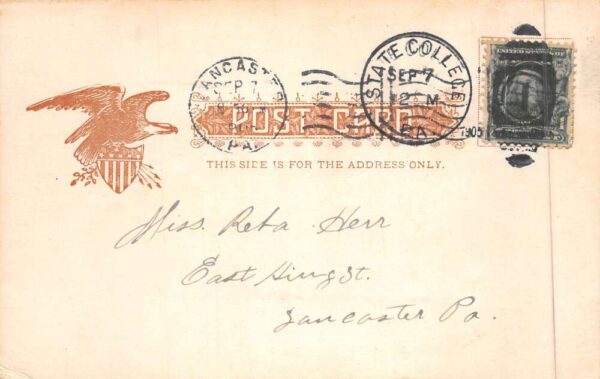 LANCASTER
SEP 7
PA.
STATE COLLEGE
SEP 7
12 M
PA.
1905
1
POST CARD
THIS SIDE IS FOR THE ADDRESS ONLY.
Miss. Reba Herr
East King St.
Lancaster Pa.